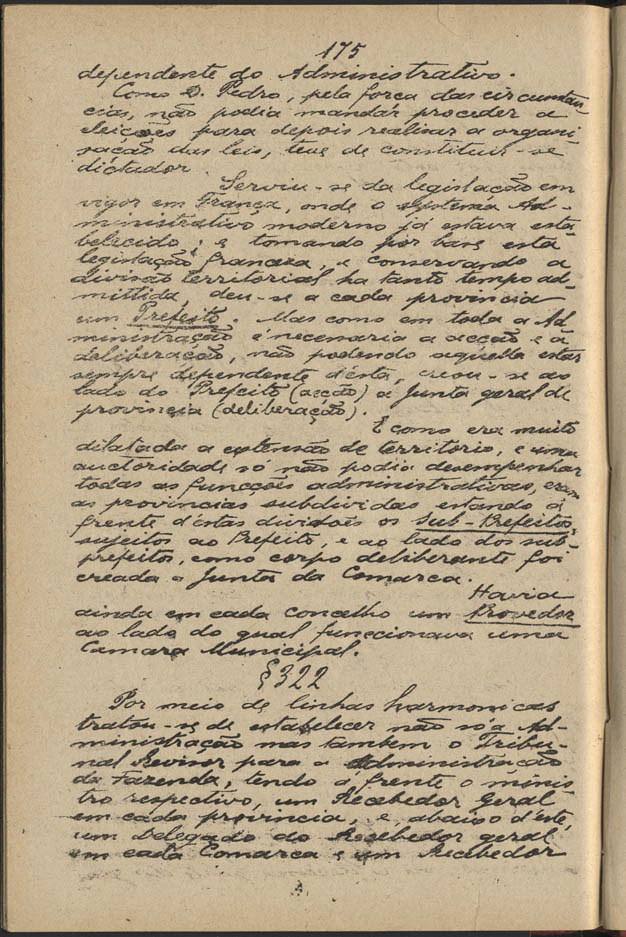 175
dependente do Administrativo.
Como D. Pedro, pela força das circunstan-
cias, não podia mandár proceder a
eleições para depois realisar a organi-
sação das leis, teve de constituir-se
dictador.
Serviu-se da legislação em
vigor em França, onde o systema Ad-
ministrativo moderno já estava esta-
belecido; e tomando por base esta
legislação franceza, e conservando a
divisão territorial ha tanto tempo ad-
mittida, deu-se a cada provincia
um Prefeito. Mas como em toda a Ad-
ministração é necessaria a acção e a
deliberação, não podendo aquella estar
sempre dependente d'esta, creou-se ao
lado do Prefeito (acção) a Junta geral de
provincia (deliberação).
E como era muito
dilatada a extensão de territorio, e uma
auctoridade só não podia desempenhar
todas as funcções administrativas, eram
as provincias subdividas estando á
frente d'estas divisões os Sub-Prefeitos,
sujeitos ao Prefeito, e ao lado dos sub-
prefeitos, como corpo deliberante foi
creada a Junta da Comarca.
Havia
ainda em cada concelho um Provedor
ao lado do qual funccionava uma
Camara Municipal.
§322
Por meio de linhas harmonicas
tratou-se de estabelecer não só a Ad-
ministração mas tambem o Tribu-
nal Revisor para a Administração
da Fazenda, tendo á frente o minis-
tro respectivo, um Recebedor Geral
em cada provincia, e, abaixo d'este,
um Delegado do Recebedor geral
em cada Comarca e um Recebedor